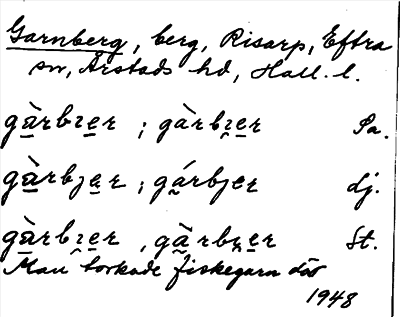 Garnberg, berg, Risarp, Eftra
sn, Årstads hd, Hall. l.
gàrbɿer ; gàrbɿer Sa.
gàrbjer ; gárbjer dj.
gàrbɿer , gàrbɿer St.
Man torkade fiskegarn där
1948